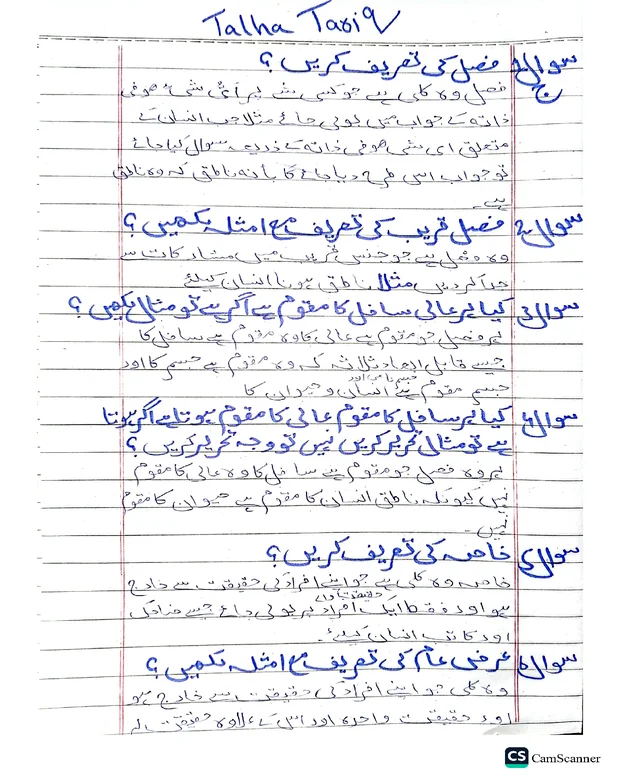 Talha Tariq
سوال1 فصل کی تعریف کریں؟
ج فصل وہ کلی ہے جو کسی شے پر أیُّ شیءٍ ھوفی
ذاتہ کے جواب میں بولی جائے مثلا جب انسان کے
متعلق ای شیء ھو فی ذاتہ کے ذریعہ سوال کیا جائے
تو جواب اسی طرح دیا جائے گا بأنہ ناطق کہ وہ ناطق
ہے۔
سوال2 فصل قریب کی تعریف مع امثلہ لکھیں؟
وہ فصل ہے جو جنس قریب میں مشارکات سے
جدا کر دیں مثلا ناطق ہونا انسان کیلئے
سوال3 کیا ہر عالی سافل کا مقوم ہے اگر ہے تو مثال لکھیں؟
ہر فصل جو مقوم ہے عالی کا وہ مقوم ہے سافل کا
جیسے قابل ابعاد ثلاثہ کہ وہ مقوم ہے جسم کا اور
جسم نامی اور
جسم مقوم ہے انسان و حیوان کا
سوال4 کیا ہر سافل کا مقوم عالی کا مقوم ہوتا ہے اگر ہوتا
ہے تو مثال تحریر کریں نہیں تو وجہ تحریر کریں؟
ہر وہ فصل جو مقوم ہے سافل کا وہ عالی کا مقوم
نہیں کیونکہ ناطق انسان کا مقوم ہے حیوان کا مقوم
نہیں۔
سوال5 خاصہ کی تعریف کریں؟
خاصہ وہ کلی ہے جو اپنے افراد کی حقیقت سے خارج
حقیقت والے
ہو اور فقط ایک افراد پر بولی جائے جیسے ضاحک
اور کاتب انسان کیلئے۔
سوال6 عرض عام کی تعریف مع امثلہ لکھیں؟
وہ کلی جو اپنے افراد کی حقیقت سے خارج ہو
اور حقیقت واحدہ اور اس کے علاوہ حقیقت پر
CS CamScanner